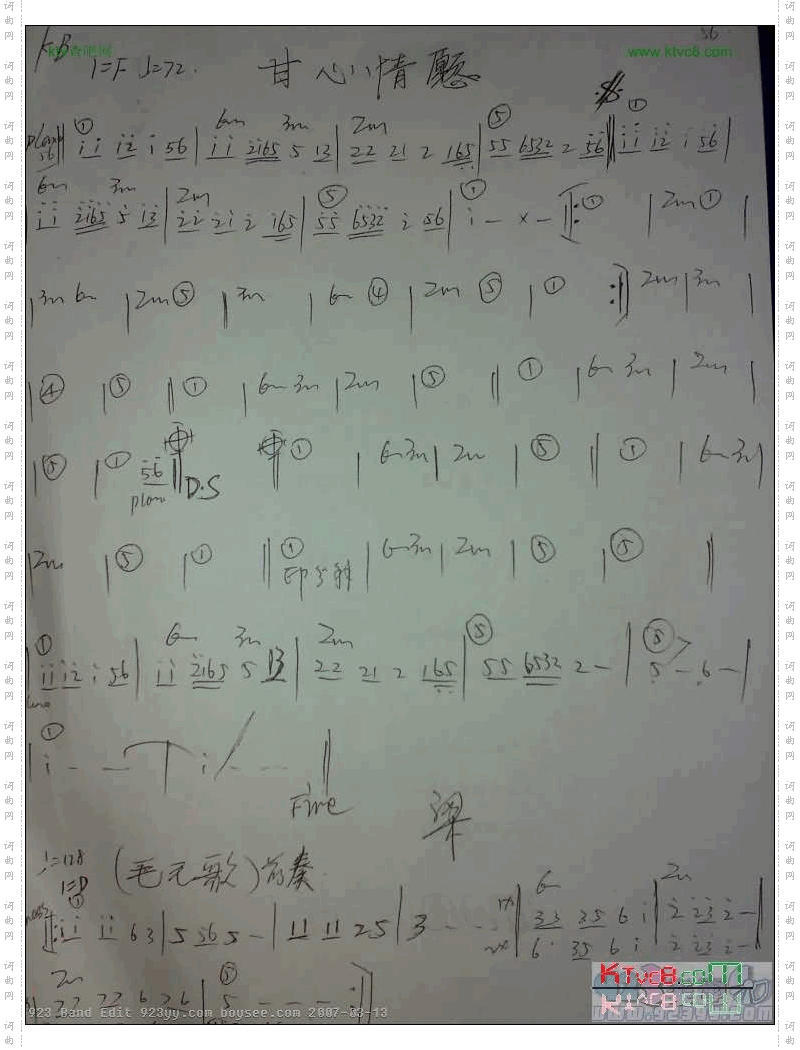 KB 56
ktv酷吧网 www.ktvc8.com
1=F ♩=72. 甘心情愿
① 6m 3m 2m ⑤ ①
56 || i i i 2 i 56 | i i 2165 5 13 | 22 21 2 165 | 55 6532 2 56 || i i i 2 i 56 |
6m 3m 2m ⑤ ①
i i 2165 5 i3 | 22 2i 2 165 | 55 6532 2 56 | i - × - ||: ① | 2m ① |
| 3m 6m | 2m ⑤ | 3m | 6m ④ | 2m ⑤ | ① :|| 2m | 3m |
| ④ | ⑤ || ① | 6m 3m | 2m | ⑤ || ① | 6m 3m | 2m |
| ⑤ | ① 56 || D.S || ① | 6m 3m | 2m | ⑤ || ① | 6m 3m |
| 2m | ⑤ | ① || ① | 6m 3m | 2m | ⑤ | ⑤ ||
① 6m 3m 2m ⑤ ⑤
| i i i 2 i 56 | i i 2165 5 13 | 22 21 2 165 | 55 6532 2 - | 5 - 6 - |
①
| i - - - | i - - - ||
Fine
♩=128 (毛元歌)前奏
①
||: i i i i 6 3 | 5 56 5 - | 11 11 25 | 3 - - -
6m 2m
33 35 6 i | 2 23 2 - |
6· 35 6 i 2 23 2 -
2m ⑤
22 22 6 76 | 5 - - - :||
KTvc8.com
www.923yy.com
923 Band Edit 923yy.com boysee.com 2007-03-13
词曲网